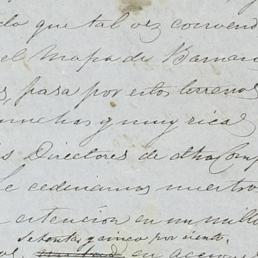 do que tal vez convend
el Mapa de Barran
s, pasa por estos terrenos
muchas y muy ricas
s Directores de dha Comp
le cederiamos nuestro
estencion en un mill
setenta y cinco por ciento,
en accion